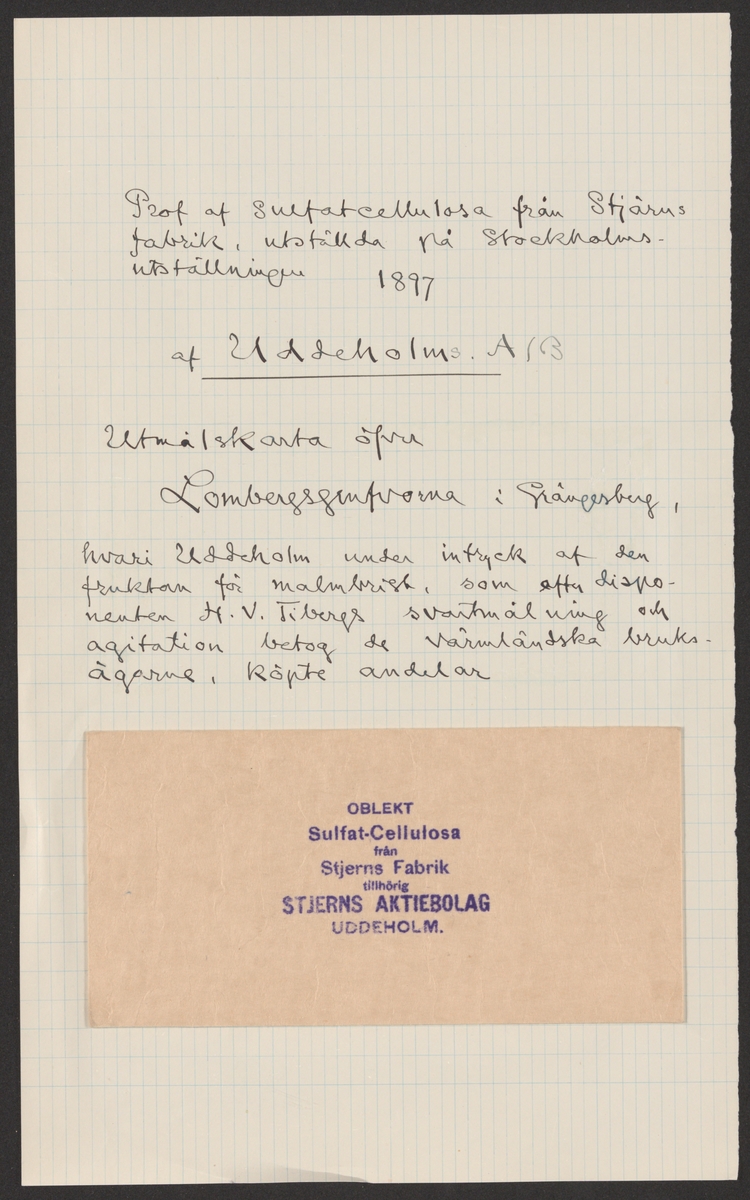 Prof af Sulfatcellulosa från Stjärns
fabrik, utställda på Stockholms-
utställningen 1897
af Uddeholms. A/B
Utmålskarta öfver
Lombergsgrufvorna i Grängesberg,
hvari Uddeholm under intryck af den
fruktan för malmbrist, som efter dispo-
nenten H. V. Tibergs svartmålning och
agitation betog de värmländska bruks-
ägarne, köpte andelar
OBLEKT
Sulfat-Cellulosa
från
Stjerns Fabrik
tillhörig
STJERNS AKTIEBOLAG
UDDEHOLM.